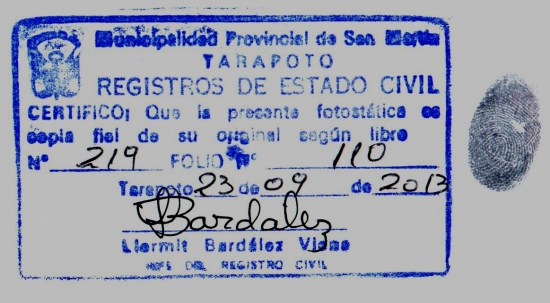 Municipalidad Provincial de San Martin
TARAPOTO
REGISTROS DE ESTADO CIVIL
CERTIFICO: Que la presente fotostática es
copia fiel de su original según libro
N° 219 FOLIO N° 110
Tarapoto 23 de 09 de 2013
Bardalez
Llermit Bardález Viena
JEFE DEL REGISTRO CIVIL